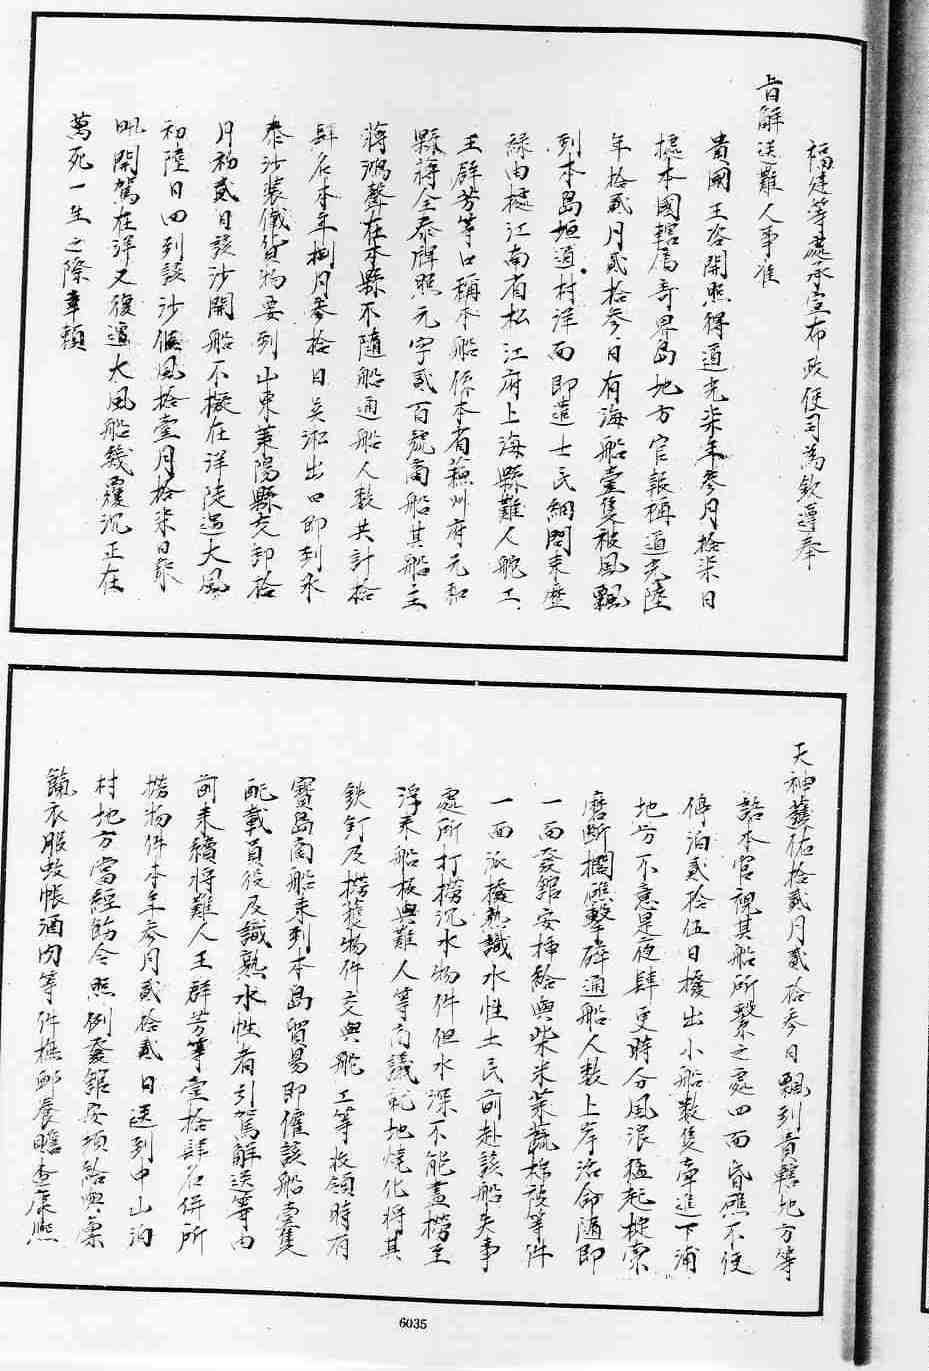 福建等處承宣布政使司為欽遵奉
旨解送難人事准
貴國王咨開照得道光柒年參月拾柒日
據本國轄屬奇界島地方官報稱道光陸
年拾貳月貳拾參日有海船壹隻被風飄
到本島垣通村洋面即遣士民細問來歷
緣由據江南省松江府上海縣難人舵工
王群芳等口稱本船係本省蘇州府元和
縣蔣全泰牌照元字貳百號商船其船主
蔣鴻聲在本縣不隨船通船人數共計拾
肆名本年捌月參拾日吳淞出口即到永
泰沙裝儎貨物要到山東萊陽縣交卸拾
月初貳日該沙開船不擬在洋陡遇大風
初陸日回到該沙候風拾壹月拾柒日衆
帆開駕在洋又復遭大風船幾覆沉正在
萬死一生之際幸賴
天神護祐拾貳月貳拾參日飄到貴轄地方等
語本官視其船所繫之處四面昏礁不便
停泊貳拾伍日撥出小船數隻牽進下浦
地方不意是夜肆更時分風浪猛起椗索
磨斷擱礁擊碎通船人數上岸活命隨即
一面發館安揷給與柴米菜蔬棉被等件
一面派撥熟識水性士民前赴該船失事
處所打撈沉水物件但水深不能盡撈至
浮來船板與難人等商議就地燒化將其
鉄釘及撈獲物件交與舵工等收領時有
寶島商船来到本島貿易即僱該船壹隻
配載員役及識熟水性者引駕解送等由
前来續將難人王群芳等壹拾肆名併所
撈物件本年參月貳拾貳日送到中山泊
村地方當經飭令照例發館安頓給與稟
餼衣服蚊帳酒肉等件撫卹養贍查康熙
6035